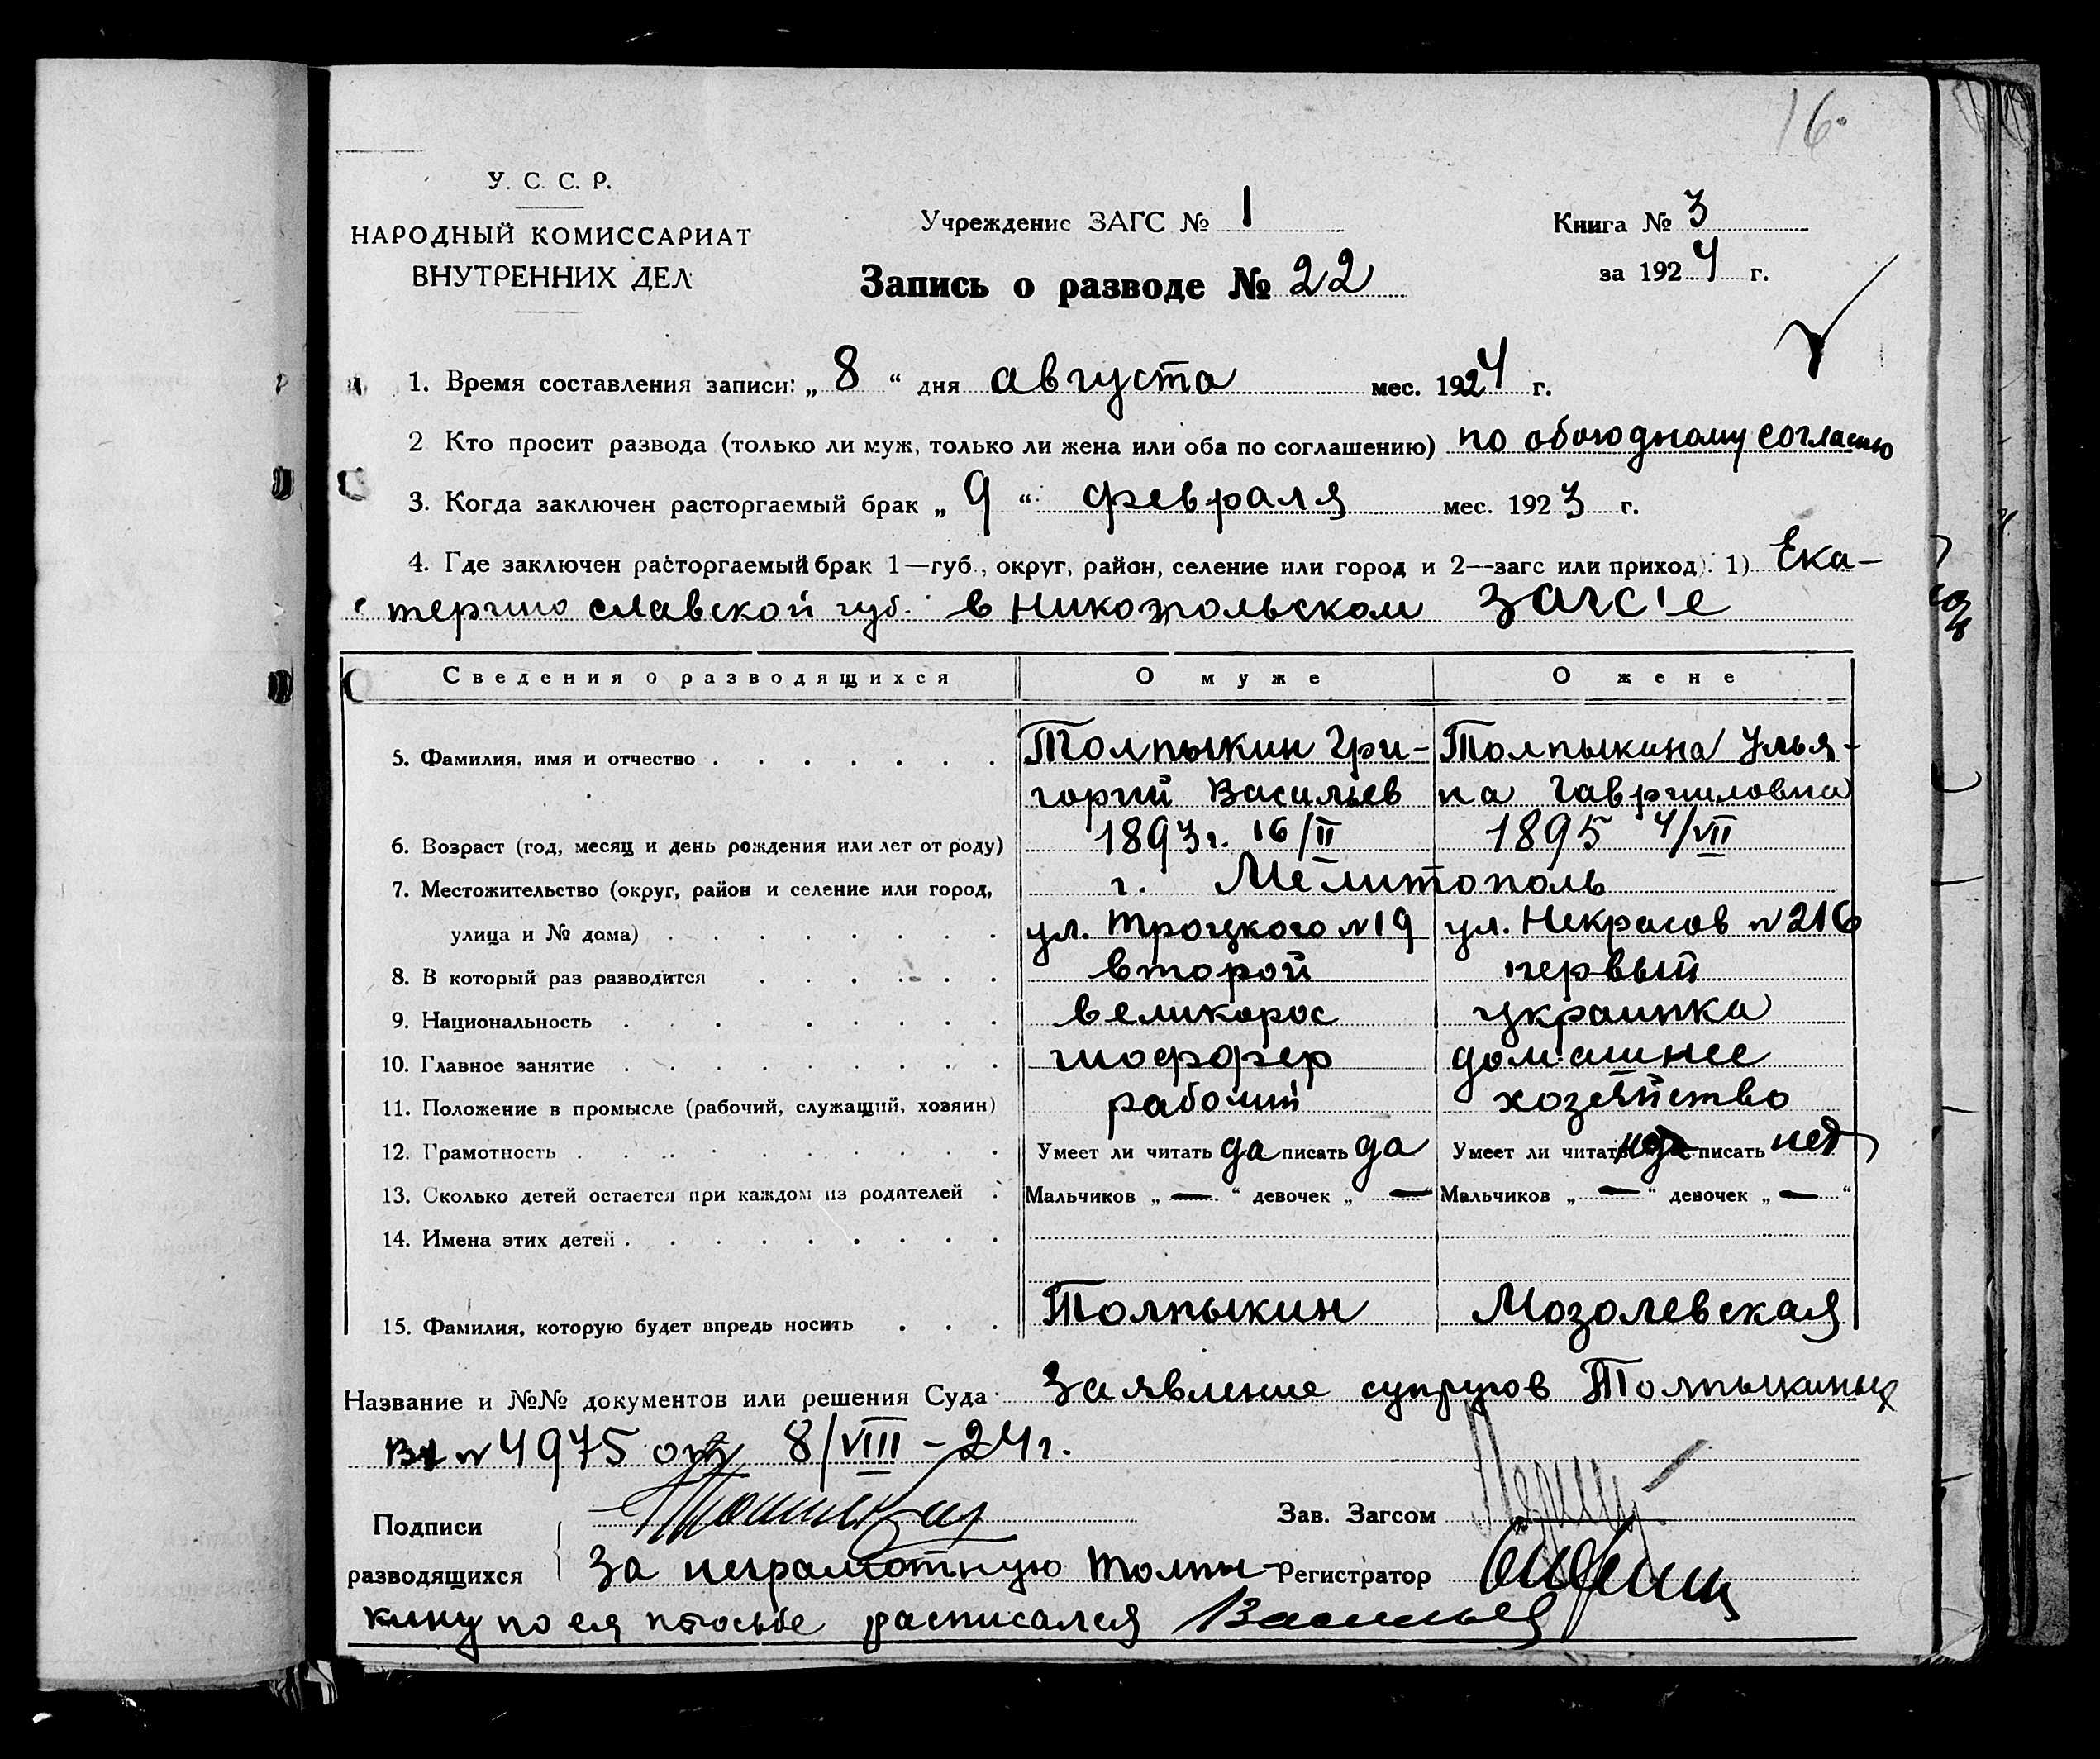 16.
У. С. С. Р.
НАРОДНЫЙ КОМИССАРИАТ
ВНУТРЕННИХ ДЕЛ
Учреждение ЗАГС № 1
Запись о разводе № 22
Книга № 3
за 1924 г.
1. Время составления записи: „ 8 “ дня августа мес. 1924 г.
2 Кто просит развода (только ли муж, только ли жена или оба по соглашению) по обоюдному согласию
3. Когда заключен расторгаемый брак „ 9 “ февраля мес. 1923 г.
4. Где заключен расторгаемый брак 1—губ., округ, район, селение или город и 2—загс или приход). 1) Ека-
теринославской губ. в Никопольском загс'е
Сведения о разводящихся О муже О жене
5. Фамилия, имя и отчество Толпыкин Гри- Толпыкина Улья-
горий Васильев на Гавриловна
6. Возраст (год, месяц и день рождения или лет от роду) 1893г. 16/II 1895 4/VII
7. Местожительство (округ, район и селение или город, г. Мелитополь
улица и № дома) ул. Троцкого №19 ул. Некрасов №216
8. В который раз разводится второй первый
9. Национальность великорос украинка
10. Главное занятие шоффер домашнее
11. Положение в промысле (рабочий, служащий, хозяин) рабочий хозяйство
12. Грамотность Умеет ли читать да писать да Умеет ли читать писать нет
13. Сколько детей остается при каждом из родителей Мальчиков „ — “ девочек „ — “ Мальчиков „ — “ девочек „ — “
14. Имена этих детей
15. Фамилия, которую будет впредь носить Толпыкин Мозолевская
Название и №№ документов или решения Суда Заявление супругов Толпыкиных
Вх № 4975 от 8/VIII-24г.
Подписи Зав. Загсом
разводящихся За неграмотную Толпы- Регистратор
кину по ея просьбе расписался Васильев